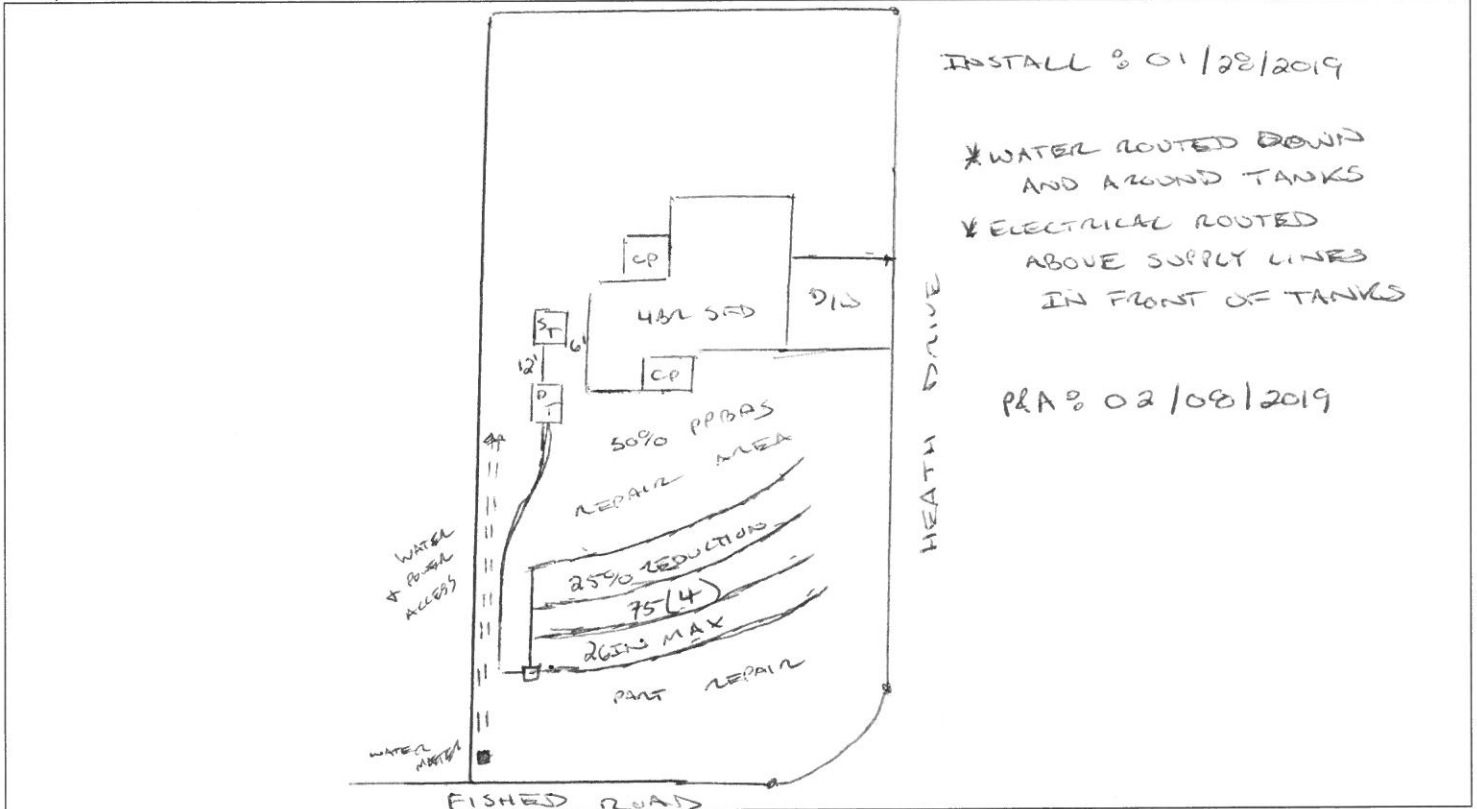 INSTALL : 01/28/2019
*WATER ROUTED DOWN
AND AROUND TANKS
*ELECTRICAL ROUTED
ABOVE SUPPLY LINES
IN FRONT OF TANKS
P&A: 02/08/2019
CP
4BR SFD
D/W
ST
6'
12'
CP
PT
HEATH DRIVE
50% PPBAS
REPAIR AREA
25% REDUCTION
75(4)
26IN MAX
PART REPAIR
WATER
& POWER
ACCESS
WATER
METER
FISHED ROAD